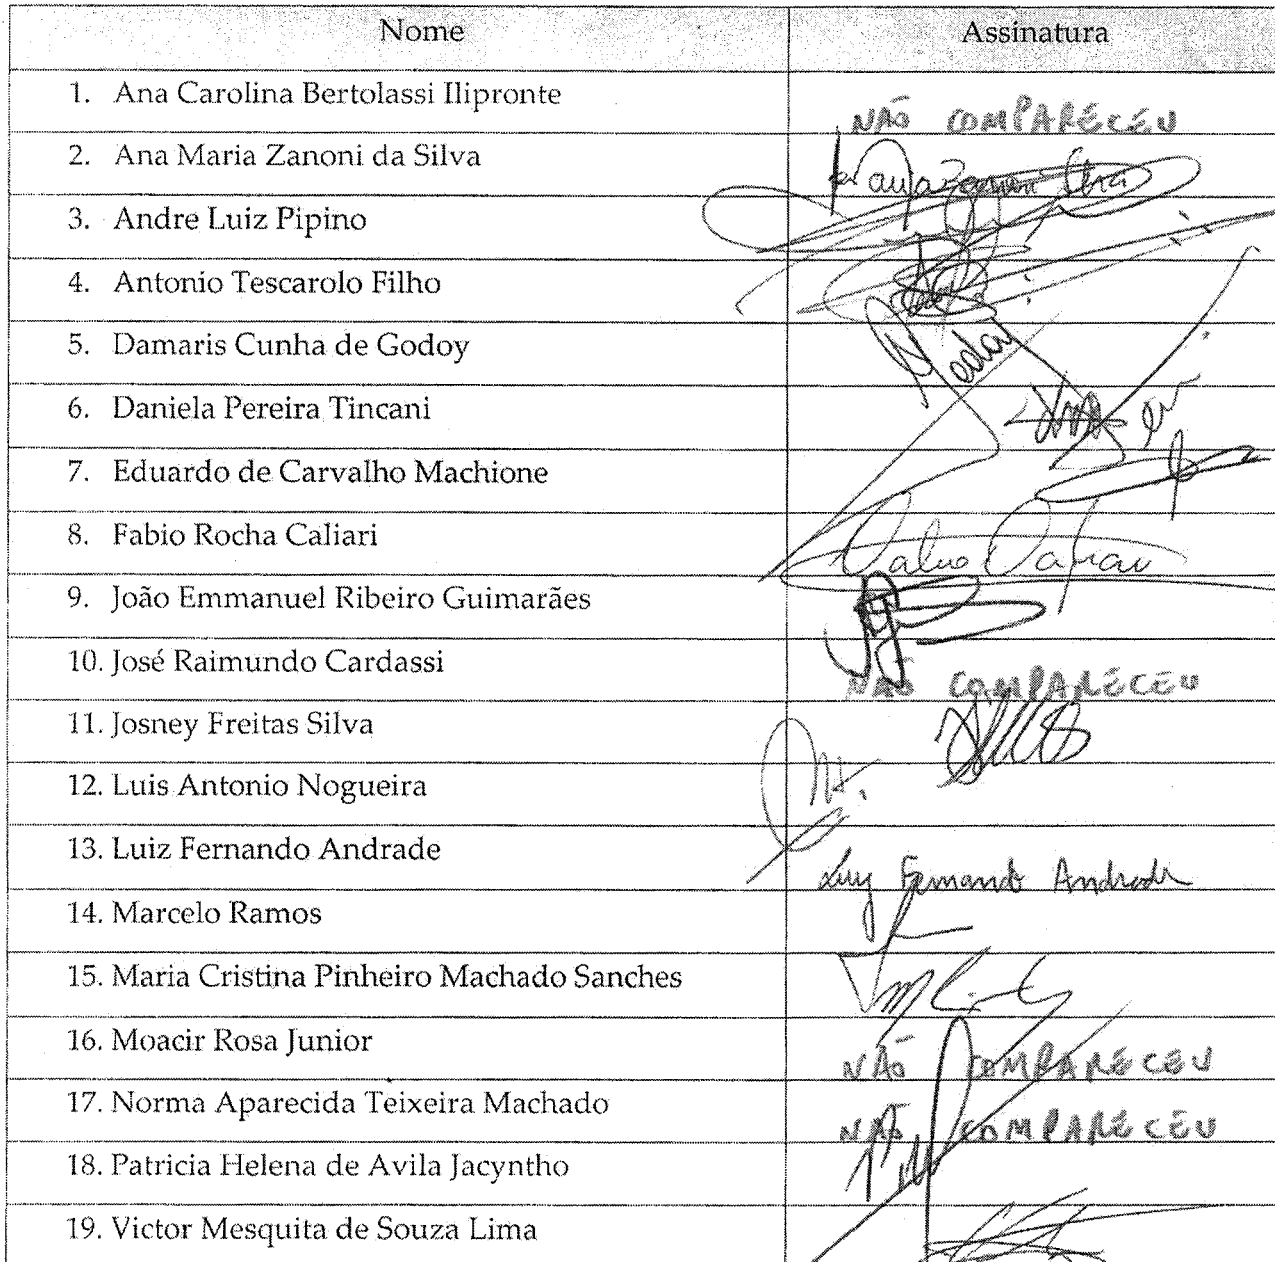 Nome Assinatura
1. Ana Carolina Bertolassi Ilipronte NÃO COMPARECEU
2. Ana Maria Zanoni da Silva
3. Andre Luiz Pipino
4. Antonio Tescarolo Filho
5. Damaris Cunha de Godoy
6. Daniela Pereira Tincani
7. Eduardo de Carvalho Machione
8. Fabio Rocha Caliari
9. João Emmanuel Ribeiro Guimarães
10. José Raimundo Cardassi NÃO COMPARECEU
11. Josney Freitas Silva
12. Luis Antonio Nogueira
13. Luiz Fernando Andrade Luiz Fernando Andrade
14. Marcelo Ramos
15. Maria Cristina Pinheiro Machado Sanches
16. Moacir Rosa Junior NÃO COMPARECEU
17. Norma Aparecida Teixeira Machado NÃO COMPARECEU
18. Patricia Helena de Avila Jacyntho
19. Victor Mesquita de Souza Lima